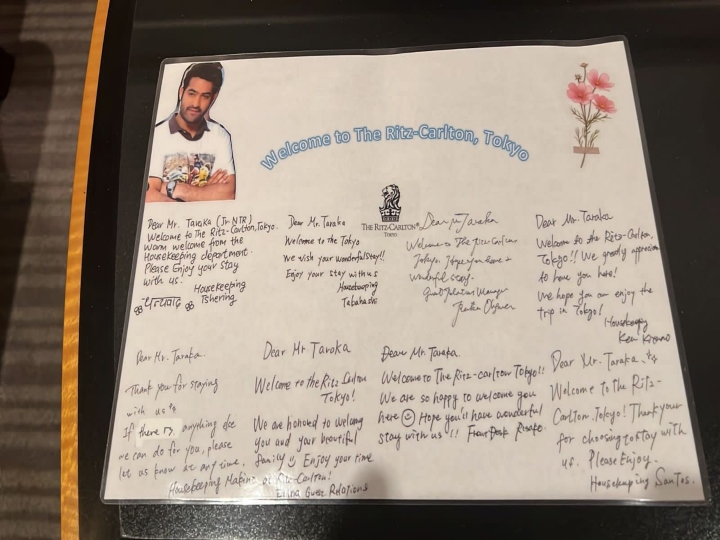 Welcome to The Ritz-Carlton, Tokyo
THE RITZ-CARLTON®
TOKYO
Dear Mr. Taraka (Jr. NTR)
Welcome to The Ritz-Carlton, Tokyo.
Warm welcome from the
Housekeeping department
Please Enjoy your stay
with us.
Housekeeping
Tshering
धन्यवाद
Dear Mr. Taraka
Welcome to the Tokyo
We wish your wonderful stay!!
Enjoy your stay with us
Housekeeping
Takahashi
Dear Mr Taraka
Welcome to The Ritz-Carlton
Tokyo. Hope you have a
wonderful stay.
Guest Relations Manager
Dear Mr. Taraka
Welcome to the Ritz-Carlton,
Tokyo!! We greatly appreciate
to have you here!
We hope you can enjoy the
trip in Tokyo!
Housekeeping
Ken
Dear Mr. Taraka
Thank you for staying
with us
If there is anything else
we can do for you, please
let us know at any time.
Housekeeping Makino
Dear Mr Taraka
Welcome to the Ritz Carlton
Tokyo!
We are honored to welcome
you and your beautiful
family Enjoy your time
at Ritz-Carlton!
Guest Relations
Dear Mr. Taraka
Welcome to The Ritz-carlton Tokyo!!
We are so happy to welcome you
here Hope you'll have wonderful
stay with us!! Front Desk
Dear Mr. Taraka
Welcome to the Ritz-
Carlton, Tokyo! Thank you
for choosing to stay with
us. Please Enjoy.
Housekeeping Santos.